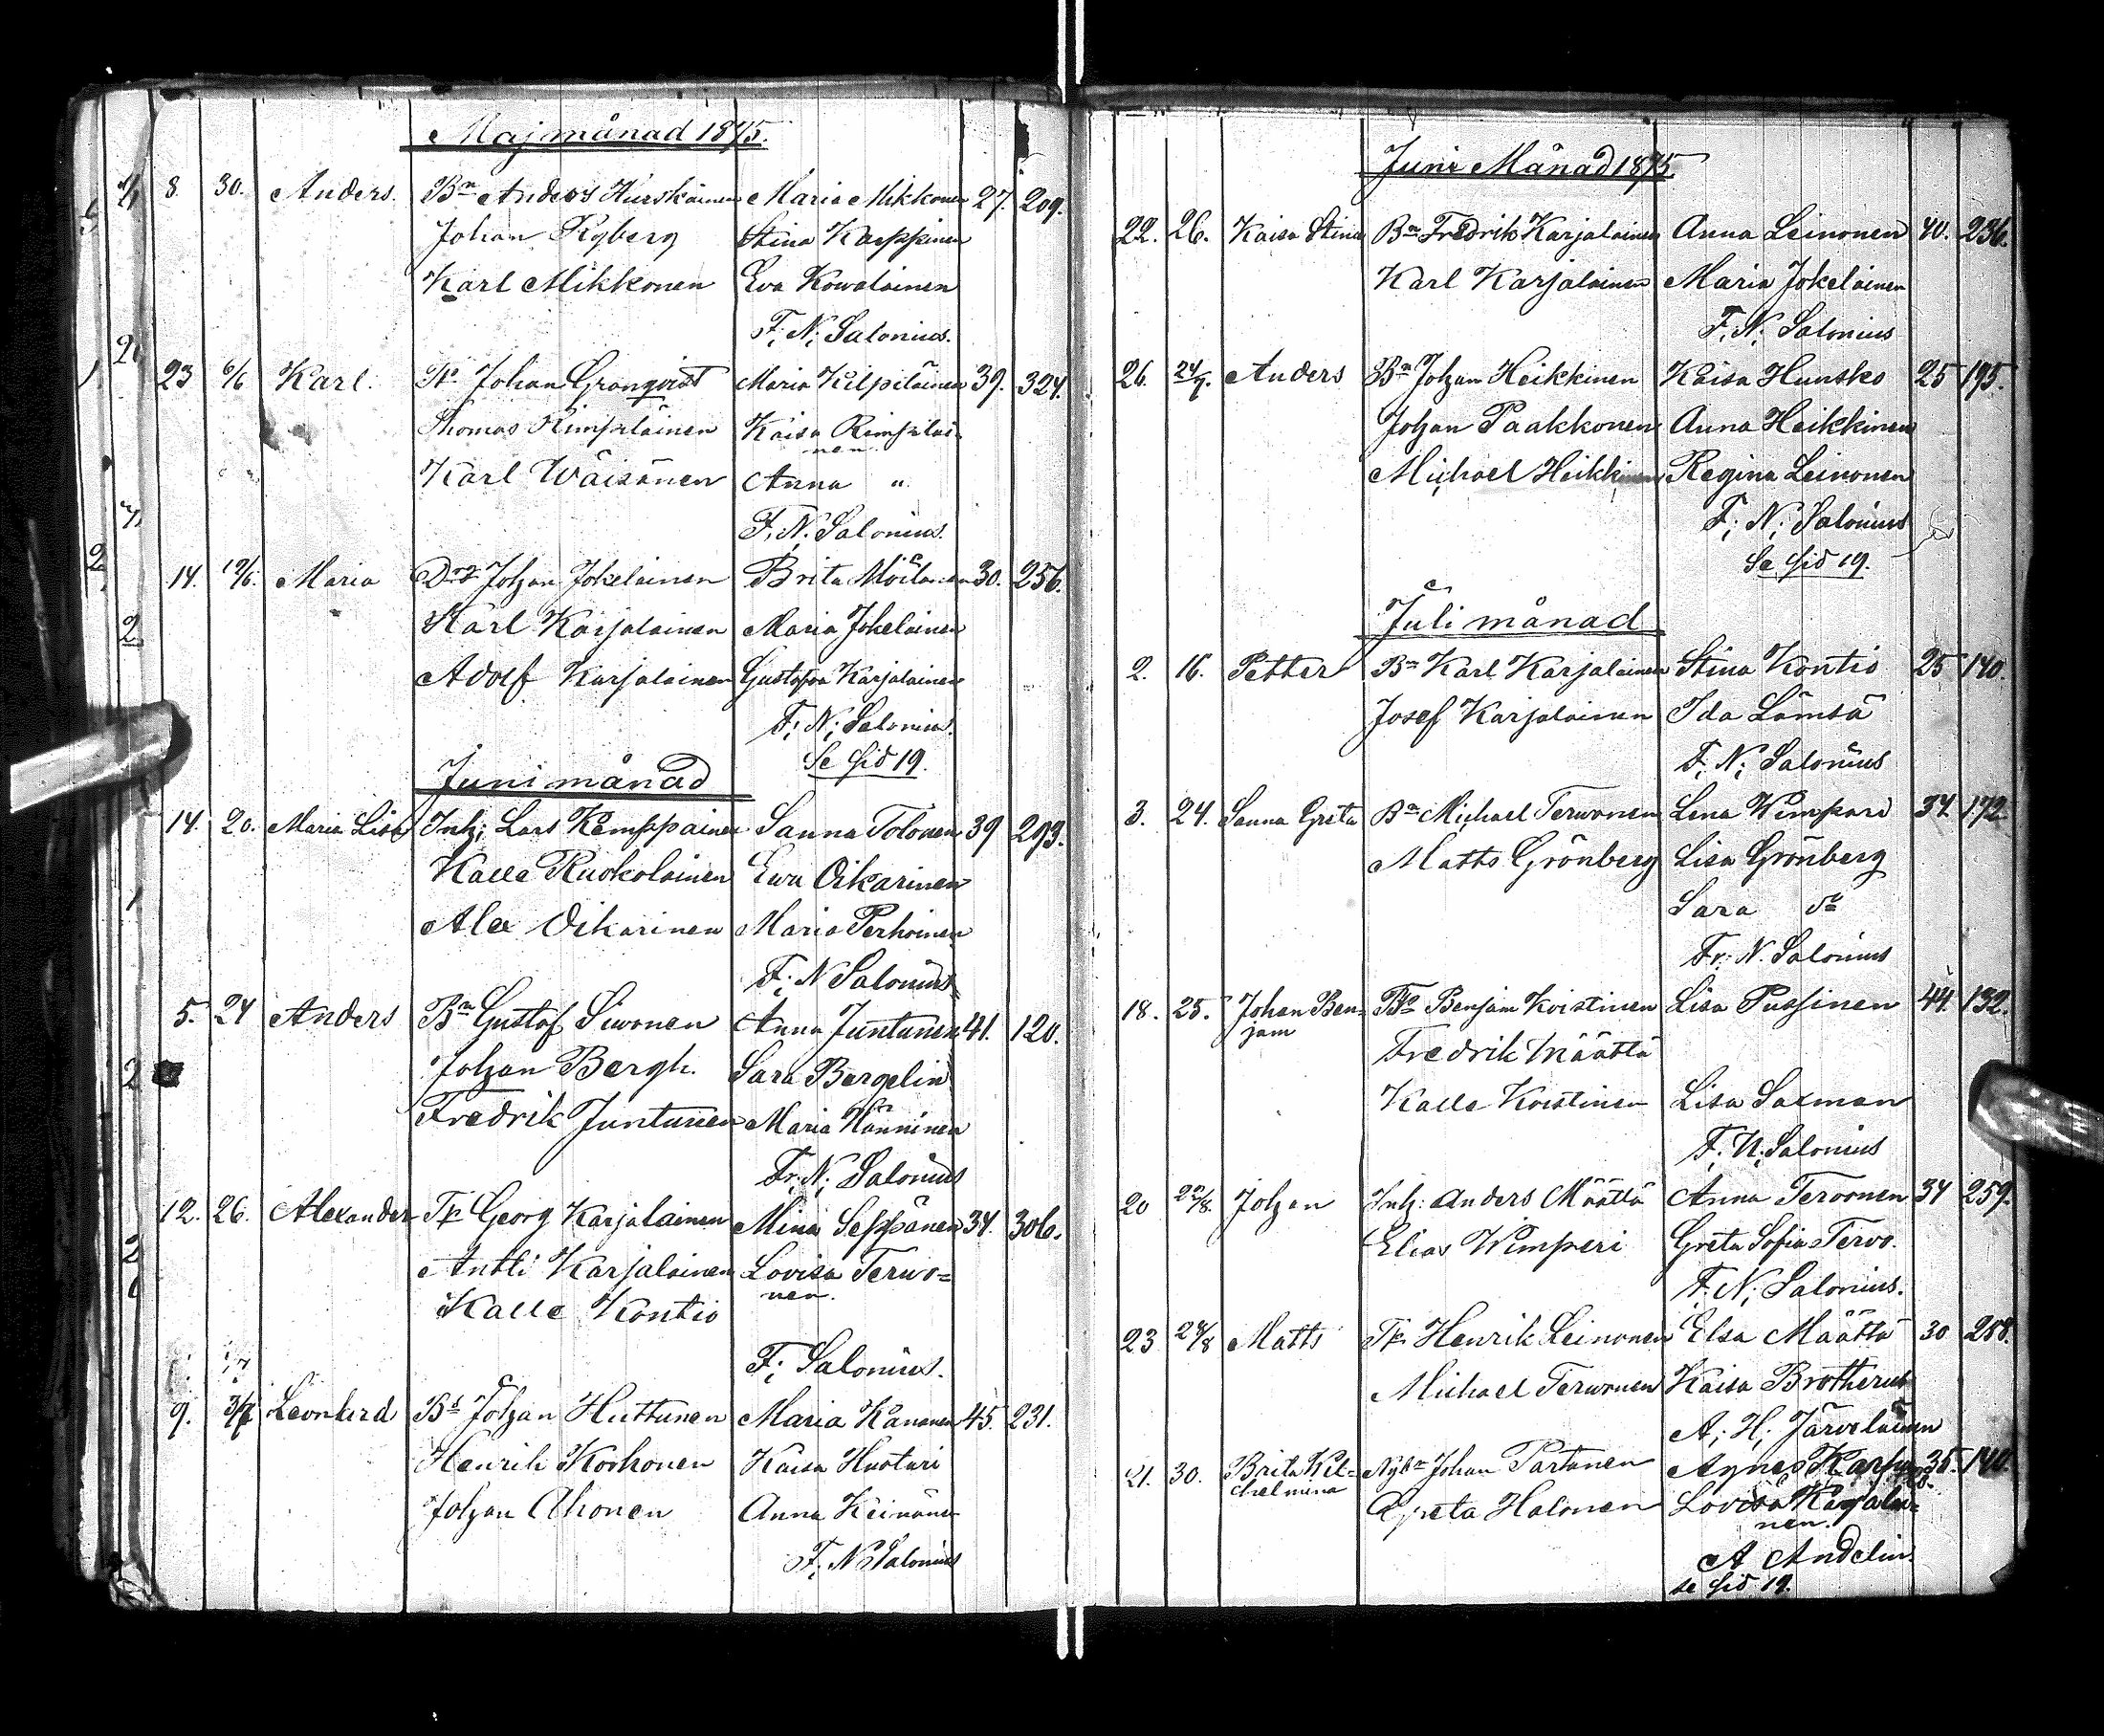 Majmånad 1875.
8. 30. Anders. Bn Anders Hurskainen Maria Mikkonen 27. 209.
Johan Ryberg Stina Karppinen
Karl Mikkonen Eva Kowalainen
F. N. Salonius.
23 6/6 Karl. Johan Granqvist Maria Kilpeläinen 39. 324.
Thomas Rimpiläinen Kaisa Rimpiläi-
nen.
Karl Wäisänen Anna "
F. N. Salonius.
14. 19/6. Maria Johan Jokelainen Brita Möilanen 30. 256.
Karl Karjalainen Maria Jokelainen
Adolf Karjalainen Gustafva Karjalainen
F. N. Salonius.
Se sid 19.
Juni månad
14. 20. Maria Lisa Inh. Lars Kemppainen Sanna Tolonen 39 293.
Kalle Ruokolainen Ewa Oikarinen
Alex Oikarinen Maria Perhoinen
F. N Salonius
5. 24 Anders Bn Gustaf Siwonen Anna Juntunen 41. 120.
Johan Bergh. Sara Bergelin
Fredrik Juntunen Maria Hänninen
Fr. N. Salonius
12. 26. Alexander Tp Georg Karjalainen Mina Seppänen 34. 306.
Antti Karjalainen Lovisa Terwo=
nen.
Kalle Kontio
F. Salonius.
9. 3/7 Leonhard Bs Johan Huttunen Maria Kananen 45. 231.
Henrik Korhonen Kaisa Huoturi
Johan Ahonen Anna Keinänen
F. N Salonius
Juni Månad 1875.
22. 26. Kaisa Stina Bn Fredrik Karjalainen Anna Leinonen 40. 236.
Karl Karjalainen Maria Jokelainen
F. N. Salonius
26. 24/7. Anders Bn Johan Heikkinen Kaisa Hunsko 25 195.
Johan Paakkonen Anna Heikkinen
Michael Heikkinen Regina Leinonen
F. N. Salonius
Se sid 19.
Juli månad
2. 16. Petter Bn Karl Karjalainen Stina Kontio 25 140.
Josef Karjalainen Ida Lämsä
F. N. Salonius
3. 24. Sanna Greta Bn Michael Terwonen Lena Wimpari 34 172
Matts Grönberg Lisa Grönberg
Sara do
Fr. N. Salonius
18. 25. Johan Ben- Benjam Koistinen Lisa Pussinen 44. 132.
jam
Fredrik Määttä
Kalle Koistinen Lisa Saxman
F. N. Salonius
20 22/8. Johan Inh: Anders Määttä Anna Terwonen 34 259.
Elias Wimperi Greta Sofia Tervo.
F. N. Salonius.
23 28/8 Matts Tp Henrik Leinonen Elsa Määttä 30 258.
Michael Terwonen Kaisa Brotherus
A. H. Järveläinen
21. 30. Brita Wil- Nybn Johan Partanen Agnes 35. 140.
helmina
Halonen Lovisa Karjalai-
nen.
A Andelin.
se sid 19.